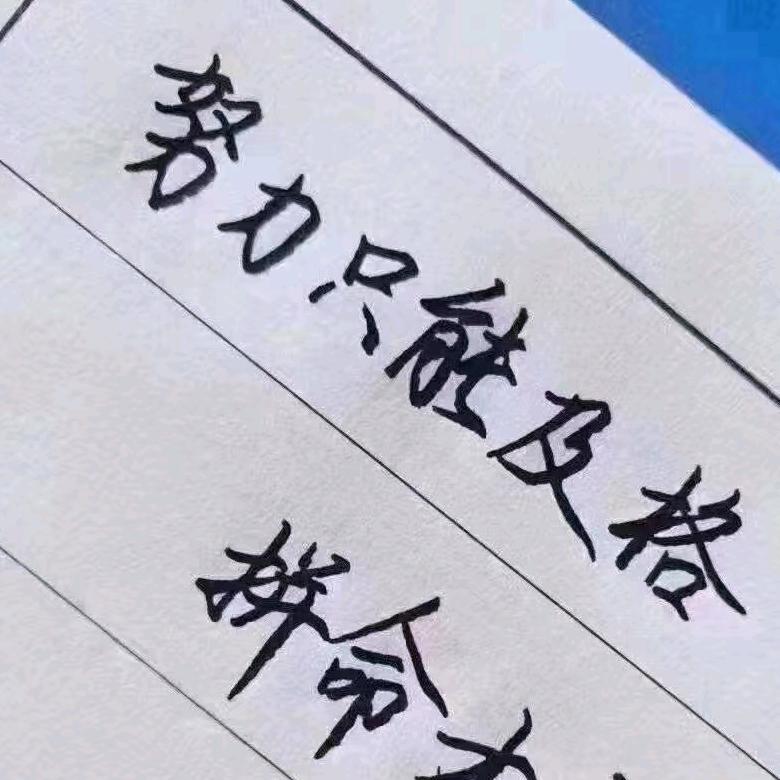 努力只能及格
拼命